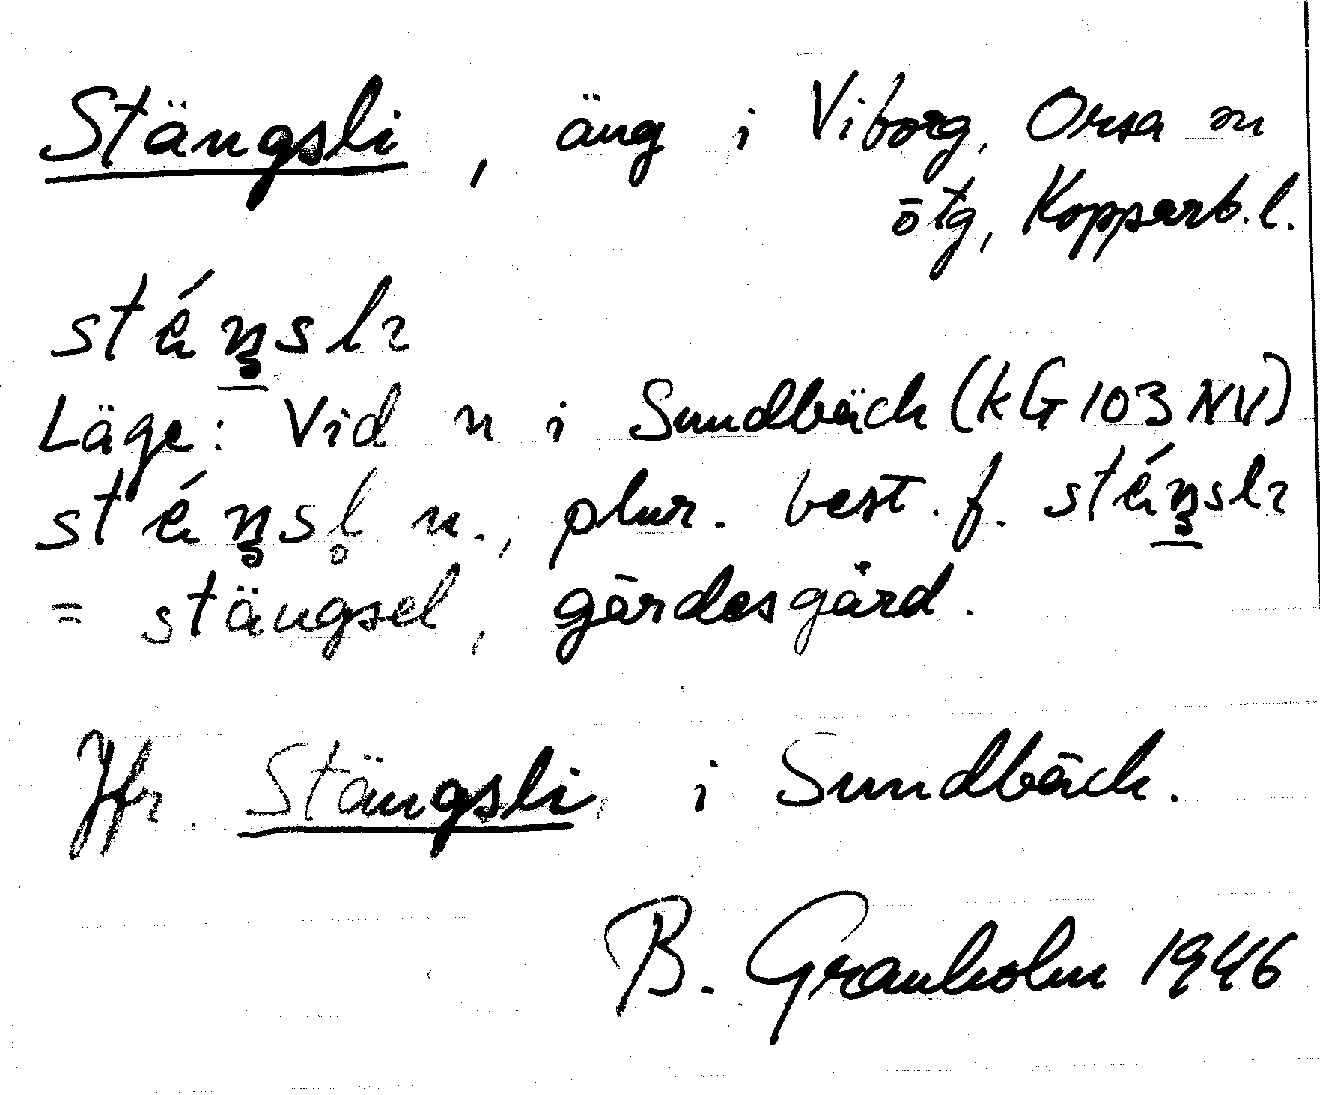 Stängsli, äng i Viborg, Orsa sn
ötg, Kopparb. l.
Läge: Vid n i Sundbäck (KG 103 NV)
n., plur. best. f.
= stängsel, gärdesgård.
Jfr Stängsli i Sundbäck.
B. Granholm 1946